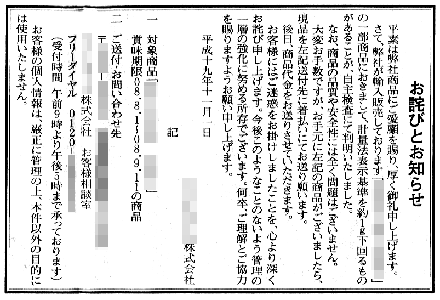 お詫びとお知らせ
平素は弊社商品にご愛顧を賜り、厚く御礼申し上げます。
さて、弊社が輸入販売しております
の一部商品におきまして、計量法表示基準を約1g下回るもの
があることが、自主検査にて判明いたしました。
なお、商品の品質や安全性には全く問題はございません。
大変お手数ですが、お手元に左記の商品がございましたら、
現品を左記送付先に着払いにてお送り願います。
後日、商品代金をお送りさせていただきます。
お客様にはご迷惑をお掛けしましたことを、心より深く
お詫び申し上げます。今後このようなことのないよう管理の
一層の強化に努める所存でございます。何卒、ご理解とご協力
を賜りますようお願い申し上げます。
平成十九年十一月 日
株式会社
記
一 対象商品
賞味期限08.8.1〜08.9.11の商品
二 ご送付・お問い合わせ先
〒 -
株式会社 お客様相談室
フリーダイヤル 0120-
(受付時間 午前9時より午後5時まで承っております)
お客様の個人情報は、厳正に管理の上、本件以外の目的に
は使用いたしません。